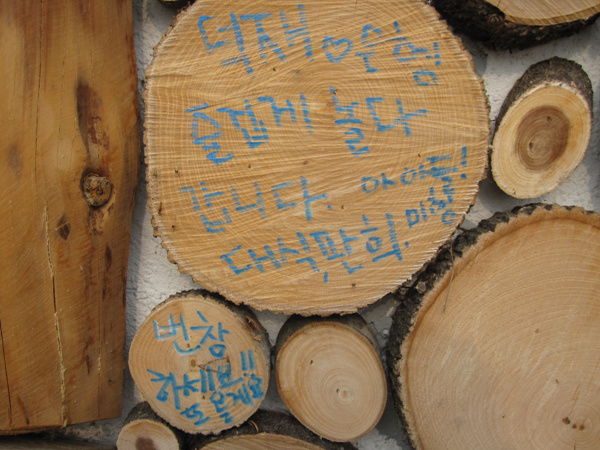 덕재♡은영
즐겁게 놀다
갑니다. 아이들
대식, 판희. 미정!!
번창
하세요!!
또 올게요